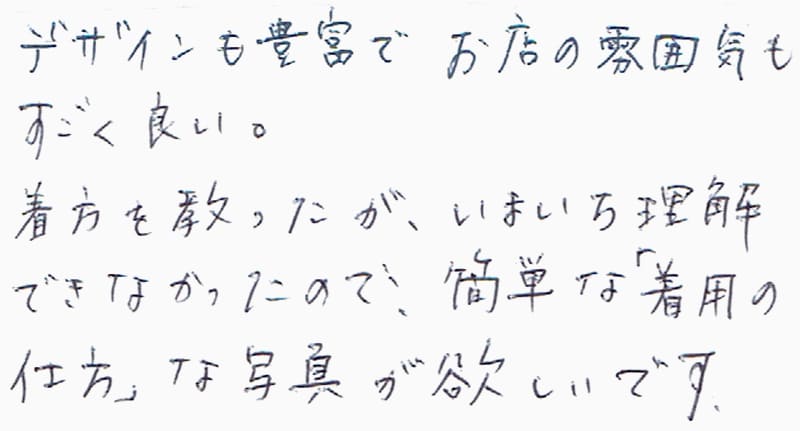 デザインも豊富で お店の雰囲気も
すごく良い。
着方を教ったが、いまいち理解
できなかったので、簡単な「着用の
仕方」な写真が欲しいです。